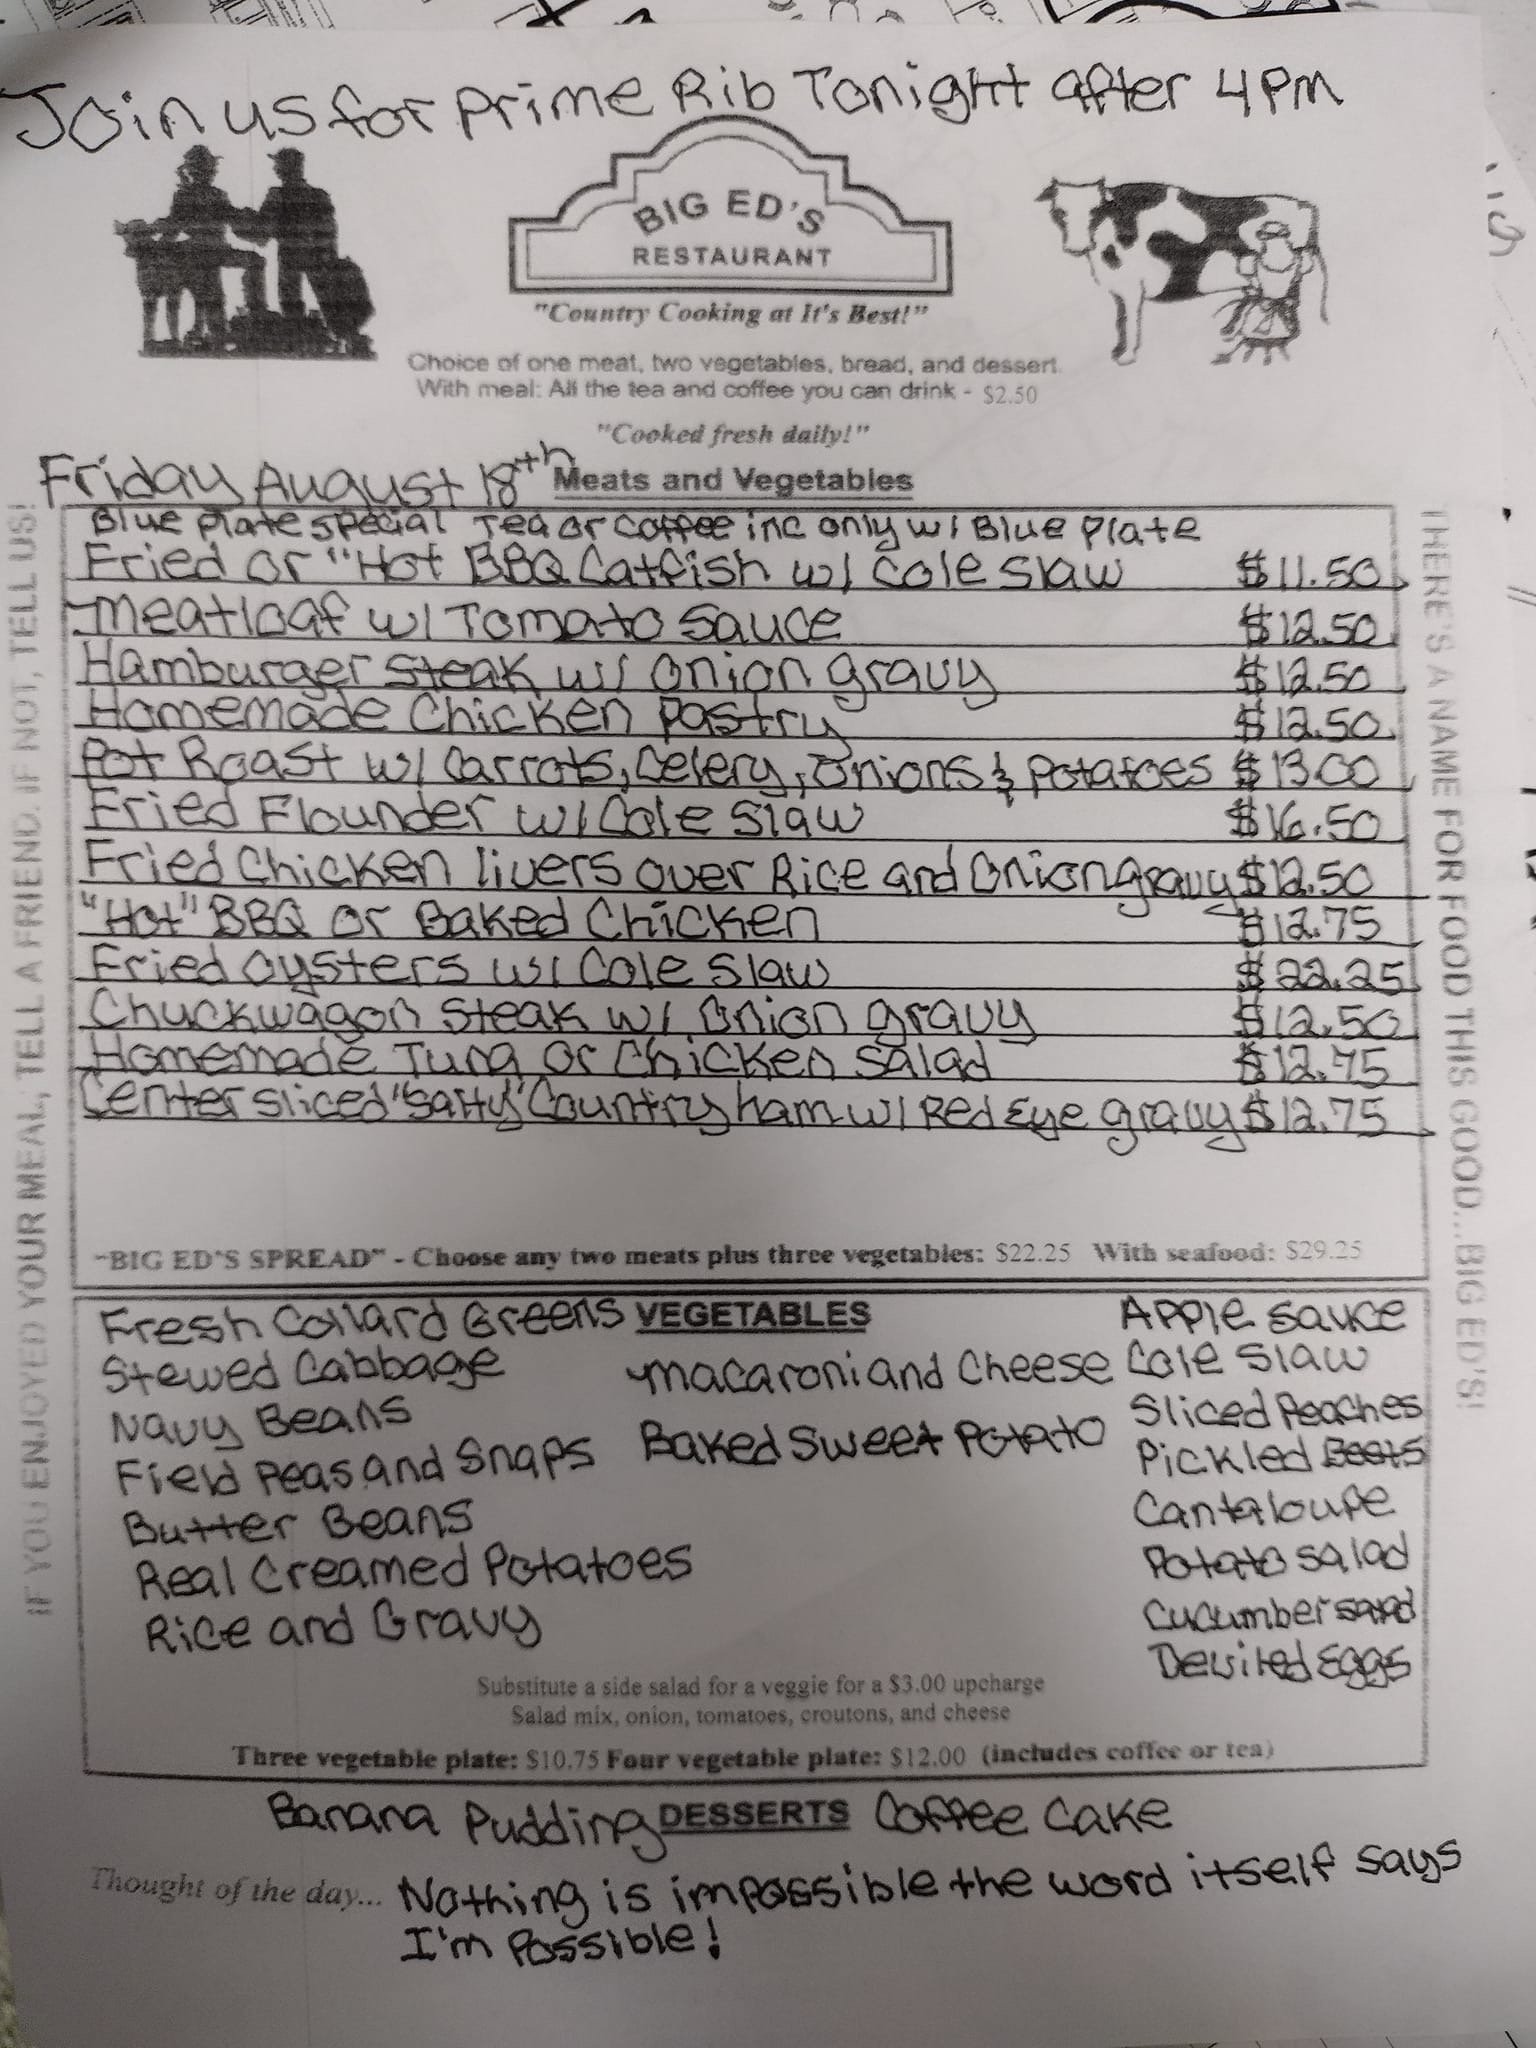 Join us for Prime Rib Tonight after 4PM
BIG ED'S
RESTAURANT
"Country Cooking at It's Best!"
Choice of one meat, two vegetables, bread, and dessert.
With meal: All the tea and coffee you can drink - $2.50
"Cooked fresh daily!"
Friday August 18th Meats and Vegetables
Blue Plate Special Tea or Coffee inc only w/ Blue Plate
Fried or "Hot BBQ Catfish w/ Cole Slaw $11.50
Meatloaf w/ Tomato Sauce $12.50
Hamburger Steak w/ Onion gravy $12.50
Homemade Chicken Pastry $12.50
Pot Roast w/ Carrots, Celery, Onions & Potatoes $13.00
Fried Flounder w/ Cole Slaw $16.50
Fried Chicken livers over Rice and Onion gravy $12.50
"Hot" BBQ or Baked Chicken $12.75
Fried Oysters w/ Cole Slaw $22.25
Chuckwagon Steak w/ Onion gravy $12.50
Homemade Tuna or Chicken Salad $12.75
Center sliced "Salty" Country ham w/ Red Eye gravy $12.75
"BIG ED'S SPREAD" - Choose any two meats plus three vegetables: $22.25 With seafood: $29.25
IF YOU ENJOYED YOUR MEAL, TELL A FRIEND. IF NOT, TELL US!
THERE'S A NAME FOR FOOD THIS GOOD...BIG ED'S!
VEGETABLES
Fresh Collard Greens
Stewed Cabbage
Navy Beans
Field Peas and Snaps
Butter Beans
Real Creamed Potatoes
Rice and Gravy
Macaroni and Cheese
Baked Sweet Potato
Apple Sauce
Cole Slaw
Sliced Peaches
Pickled Beets
Cantaloupe
Potato Salad
Cucumber Salad
Deviled Eggs
Substitute a side salad for a veggie for a $3.00 upcharge
Salad mix, onion, tomatoes, croutons, and cheese
Three vegetable plate: $10.75 Four vegetable plate: $12.00 (includes coffee or tea)
Banana Pudding DESSERTS Coffee Cake
Thought of the day... Nothing is impossible the word itself says
I'm Possible!